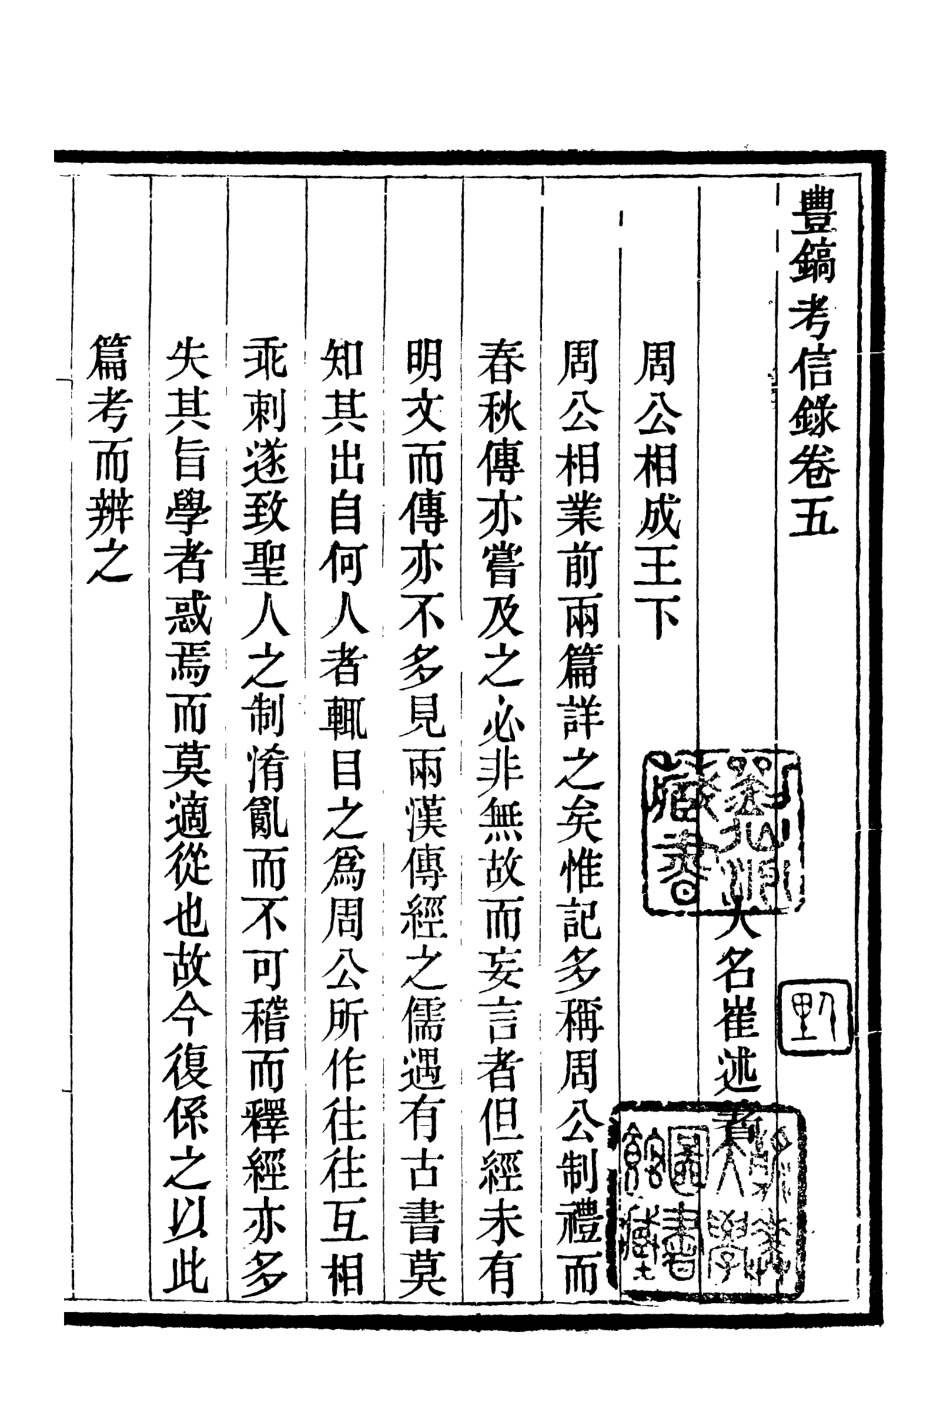 豐鎬考信錄卷五
大名崔述著
周公相成王下
周公相業前兩篇詳之矣惟記多稱周公制禮而
春秋傳亦嘗及之必非無故而妄言者但經未有
明文而傳亦不多見兩漢傳經之儒遇有古書莫
知其出自何人者輒目之爲周公所作往往互相
乖刺遂致聖人之制淆亂而不可稽而釋經亦多
失其旨學者惑焉而莫適從也故今復係之以此
篇考而辨之
圖書
館藏
藏書